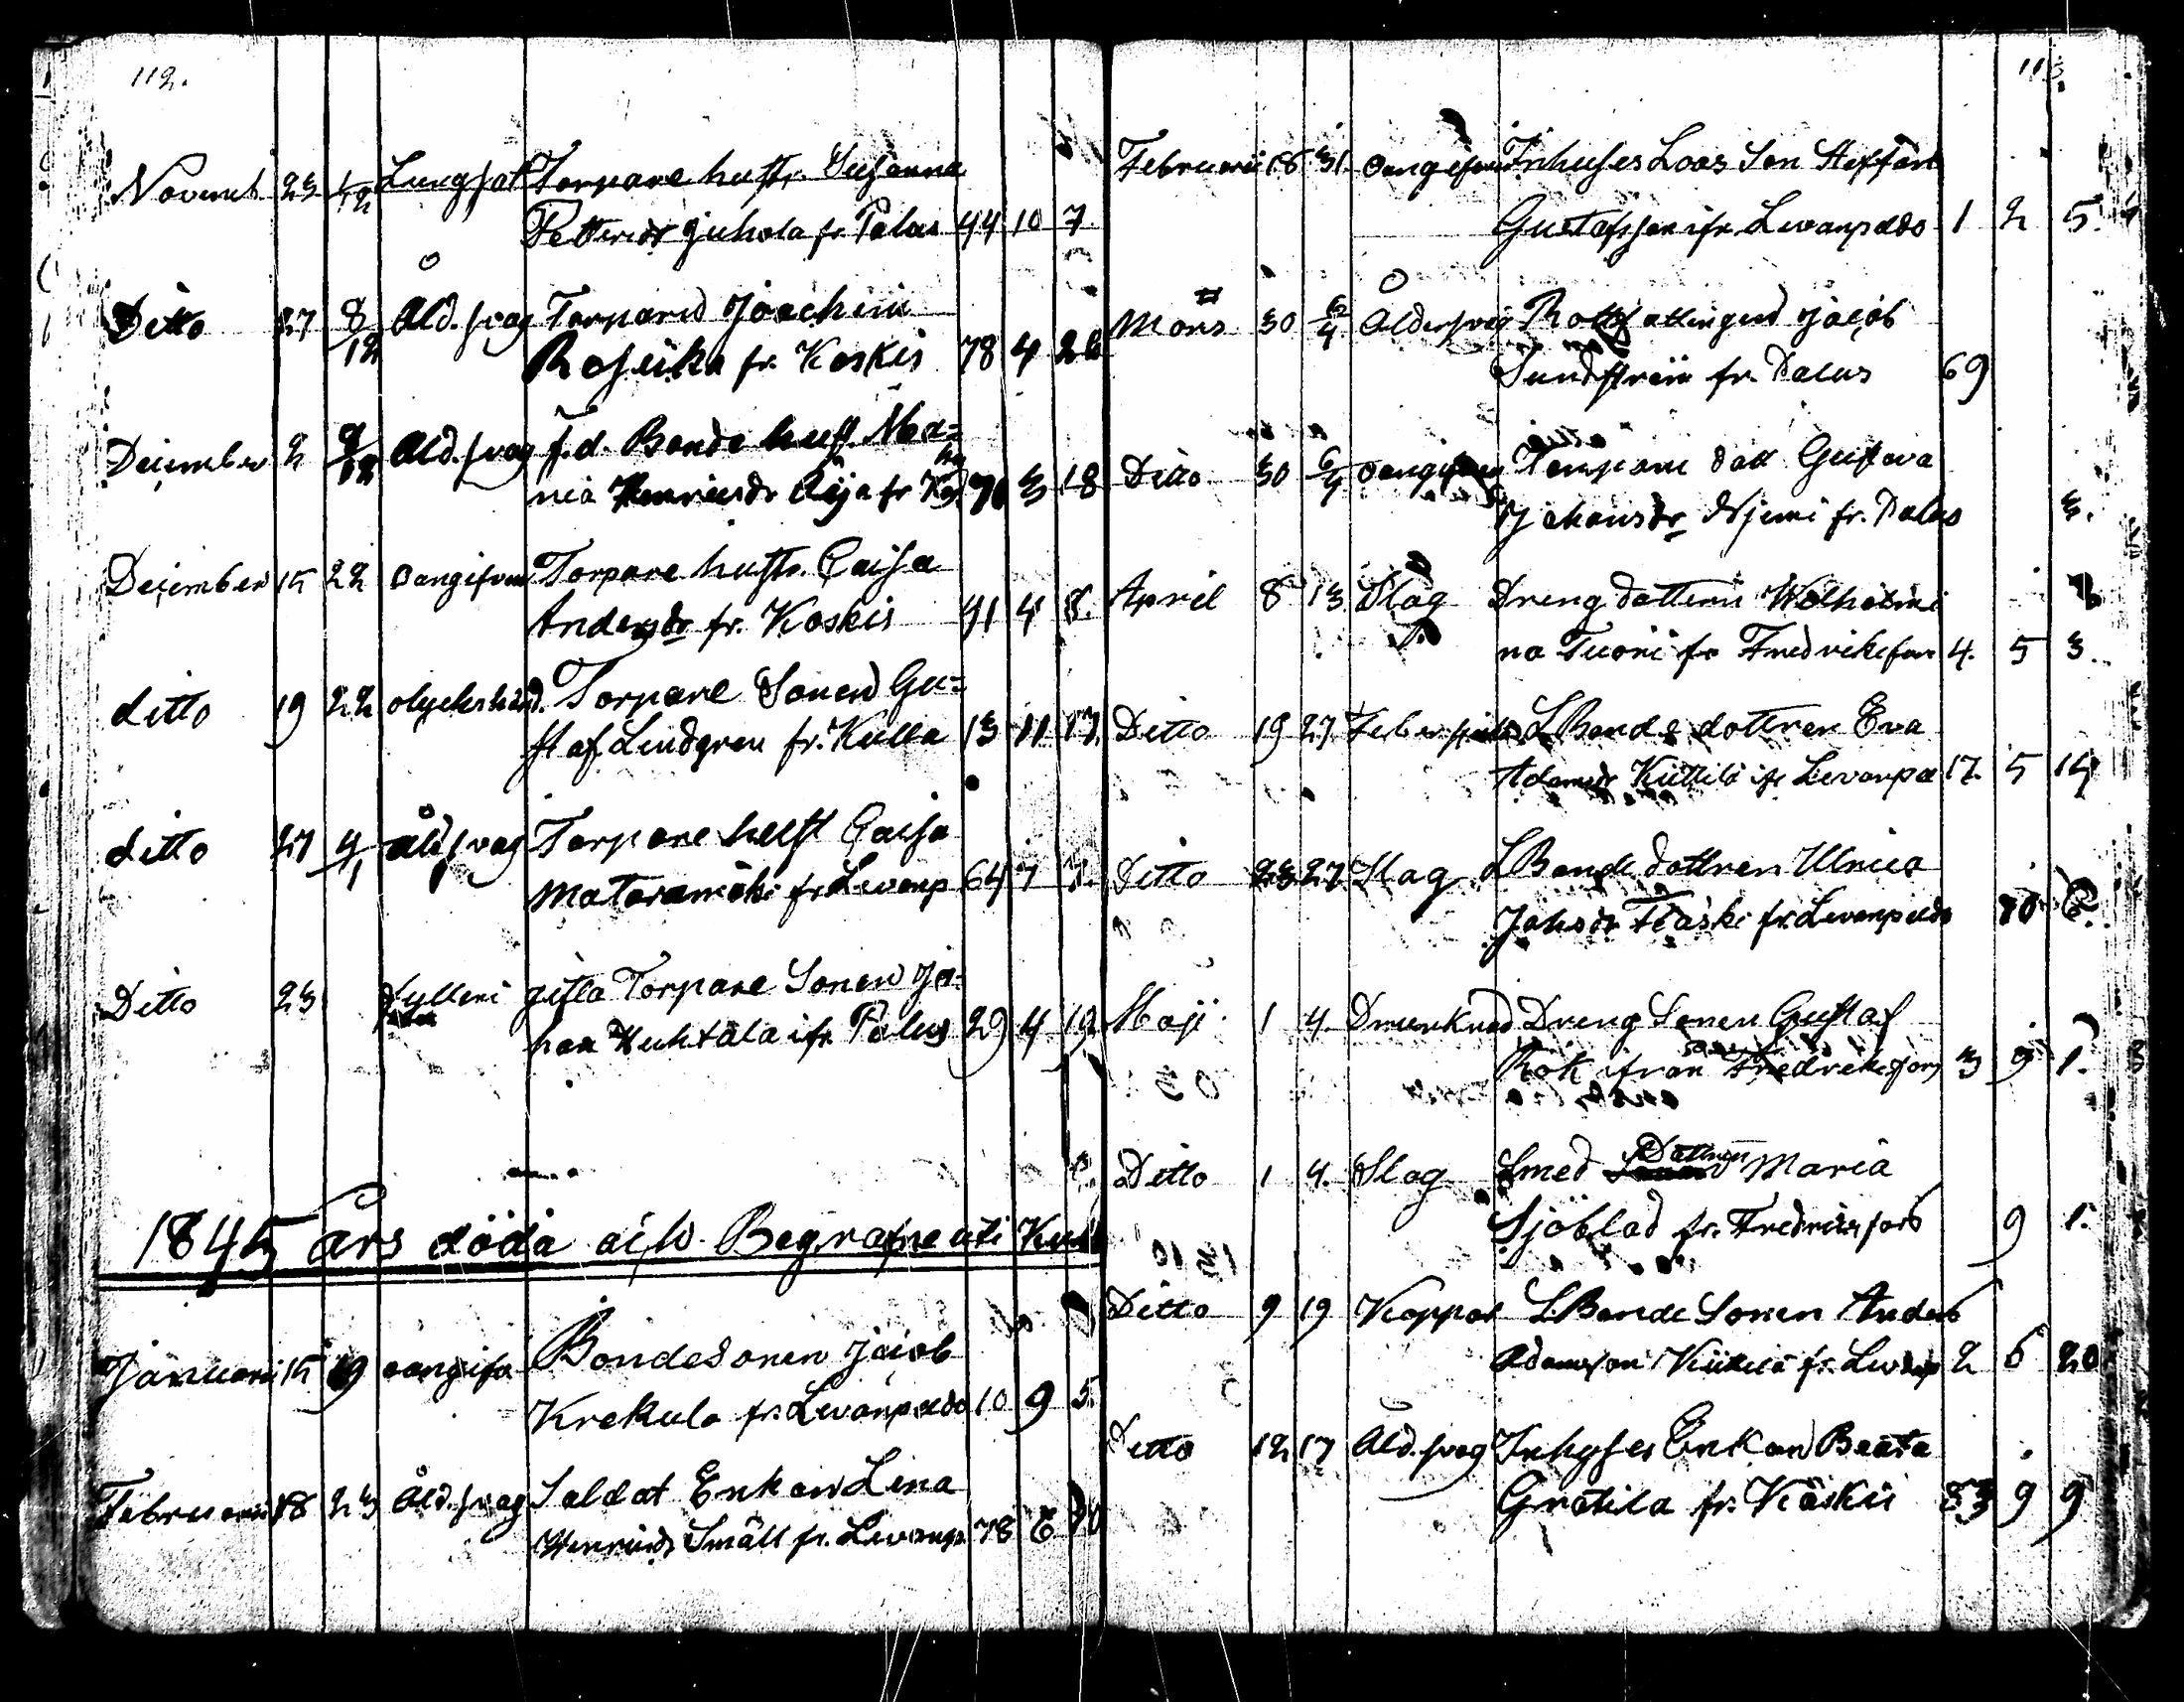 112.
Novemb 23 1/12 Lungsot Torpare hustr. Susanna
Pettersdr Juhola fr. Palus 44 10 7
Ditto 27 8/12 Åld.svag Torparen Joachim
Rosnika fr. Koskis 78 4 26
December 2 8/12 Åld.svag f.d. Bonde hust. Ma=
ria Henricsdr Äijä fr 71 3 18
December 15 22 oangifven Torpare hustr. Caisa
Andersdr fr. Koskis 41 4 8.
ditto 19 22 olyckshänd. Torpare Sonen Gu=
staf Lindgren fr. Kulla 13 11 17.
ditto 27 4/1 Åld.svag Torpare hust Caisa
Mataramäki fr. Levanp 64 7 7.
Ditto 23 fylleri gifta Torpare Sonen Jo=
han Huhtala ifr. Palus 29 4 19
1845 års döda och Begrafne uti
Januari 15 19 oangifv Bondesonen Jacob
Krekula fr. Levanpeldo 10 9 5.
Februari 18 23 Åld.svag Soldat Enkan Lena
Henricsdr Smäll fr. Levanp. 78 6
113.
Februari 16 31. oangifven Inhyses Loas Son Steffan
Gustafsson ifr. Levanpeldo 1 2 5.
Mars 30 6/4 Åldersvag Jacob
Sundström fr. Palus 69
Ditto 30 6/4 oangifven Torpare dott Gustava
Johansdr Njemi fr. Palus 3.
April 8 13 Slag Dreng dottern Wilhelmi
na Tuori fr Fredriksfors 4. 5 3.
Ditto 19 27. Feber LBonde dottren Eva
Adamsdr Küttilä ifr Levanpe 17. 5 14
Ditto 23 27. Slag LBonde dottren Ulrica
Johsdr Fläski fr. Levanpeldo 10 6.
Maji 1 4. Drunknad Dreng Sonen Gustaf
Rök ifrån Fredriksfors 3 9 1.
Ditto 1 4. Slag Smed Dottren Maria
Sjöblad fr. Fredriksfors 9 1.
Ditto 9 19 Koppor L.Bonde Sonen Anders
Adamsson Küttilä fr. Levanp 2 6 20
Ditto 12 17 Åld.svag Inhyses Enkan Beata
Grötila fr. Koskis 83 9 9